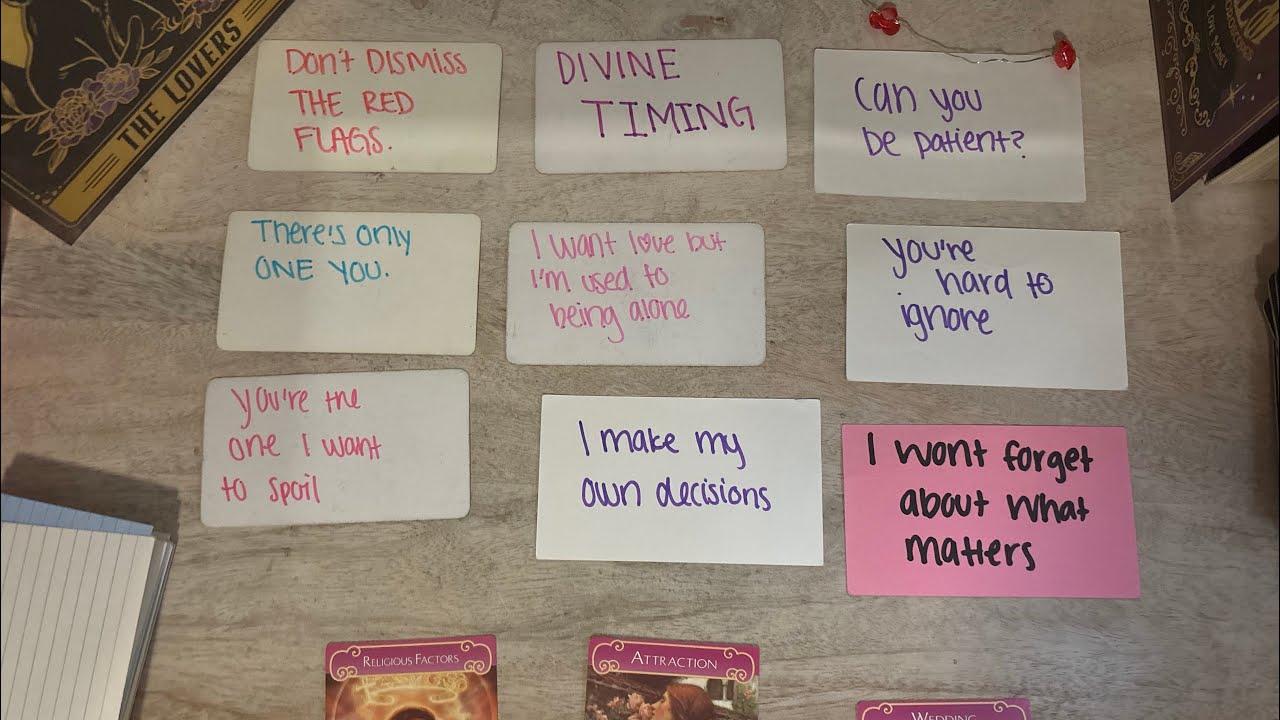 THE LOVERS
Don't Dismiss
THE RED
FLAGS.
DIVINE
TIMING
Can you
be patient?
There's only
ONE YOU.
I want love but
I'm used to
being alone
you're
hard to
ignore
you're the
one I want
to spoil
I make my
own decisions
I wont forget
about what
matters
RELIGIOUS FACTORS
ATTRACTION
WEDDING